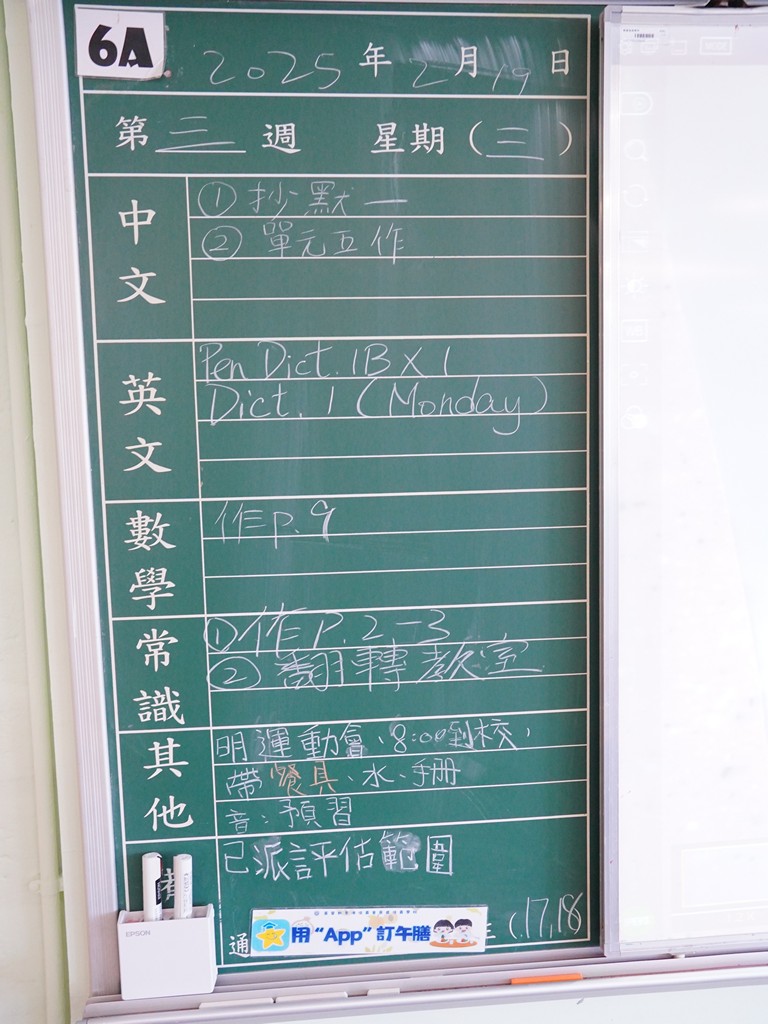 6A
2025年2月19日
第三週 星期(三)
中文
① 抄默一
② 單元工作
英文
Pen Dict. 1B X 1
Dict. 1 (Monday)
數學
作p.9
常識
① 作P.2-3
② 翻轉教室
其他
明運動會、8:00到校，
帶餐具、水、手冊
音:預習
已派評估範圍
通
(17,18
用“App”訂午膳
EPSON